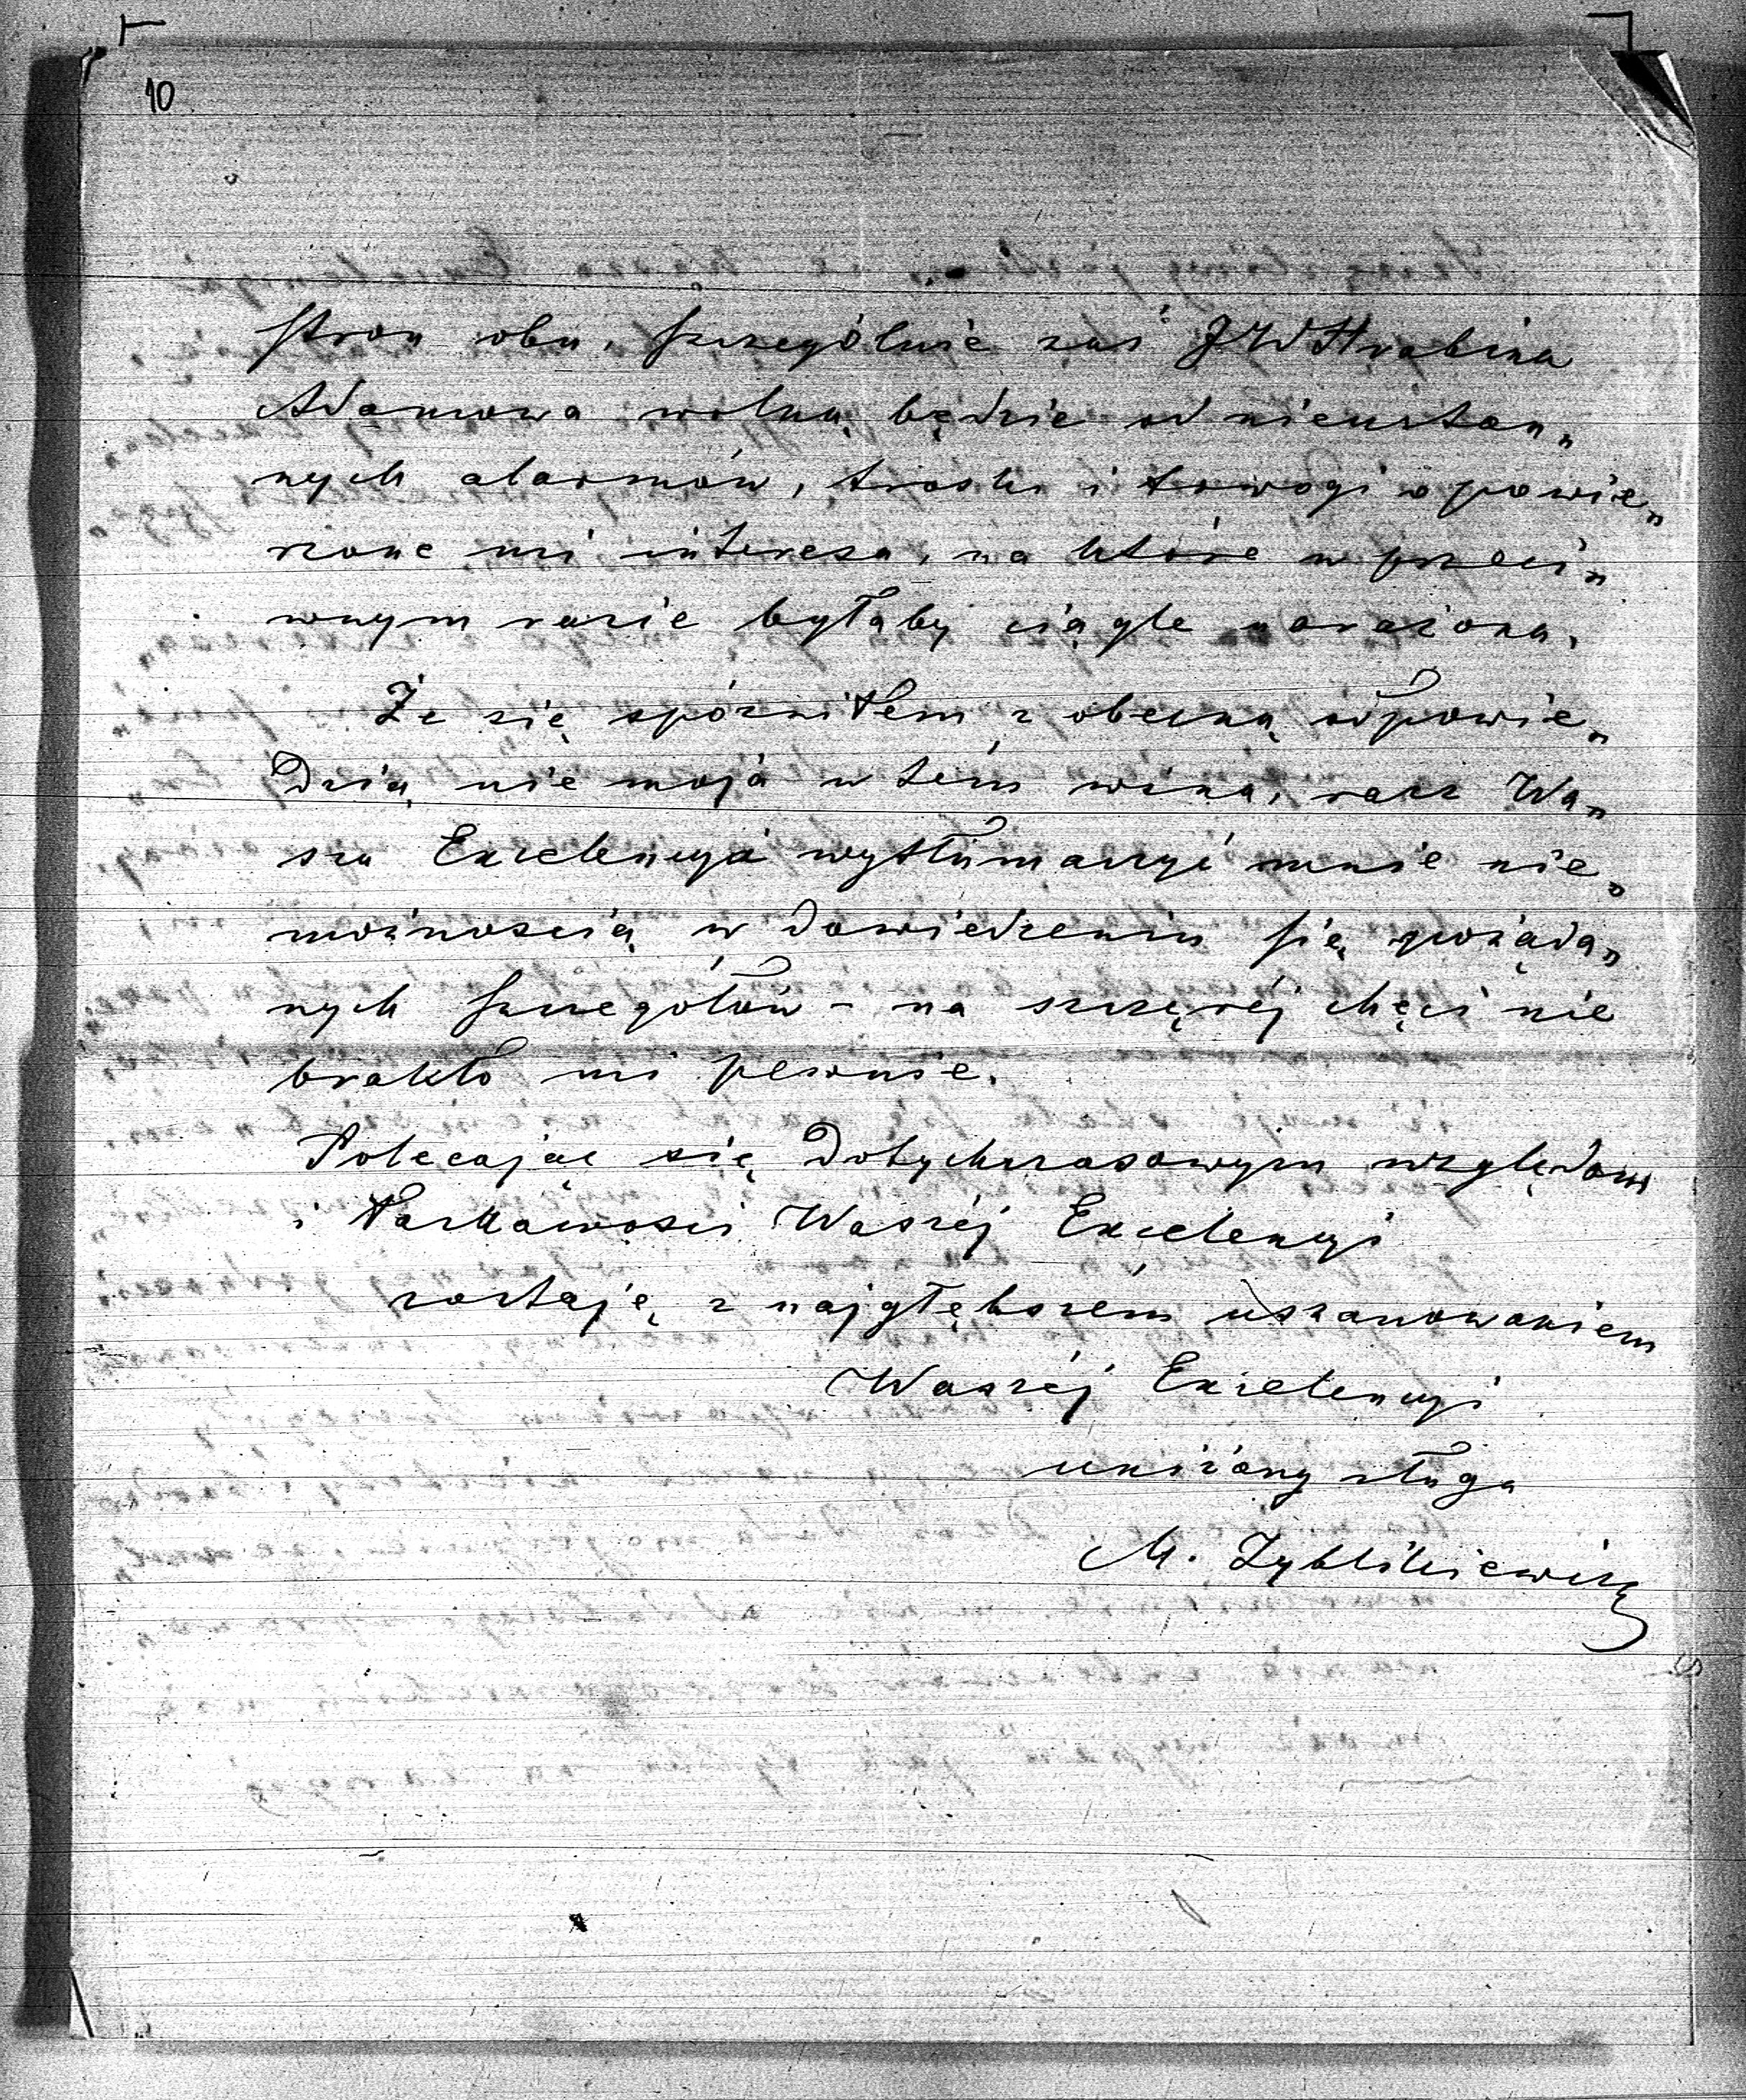 10
stron obu, szczególnie zaś JWHrabina
Adamowa wolną będzie od nieustan„
nych alarmów, troski i trwogi o powie„
rzone mi interesa, na które w przeci„
wnym razie byłaby ciągle narażona.
Że się spóźniłem z obecną odpowie„
dzią nie moja w tém wina, racz Wa„
sza Excelencya wytłumaczyć mnie nie„
możnością w dowiedzeniu się pożąda„
nych szczegółów – na szczeréj chęci nie
brakło mi pewnie.
Polecając się dotychczasowym względom
i łaskawości Waszéj Excelencyi
zostaję z najgłębszém uszanowaniem
Waszéj Excelencyi
uniżony sługa
M. Zyblikiewicz